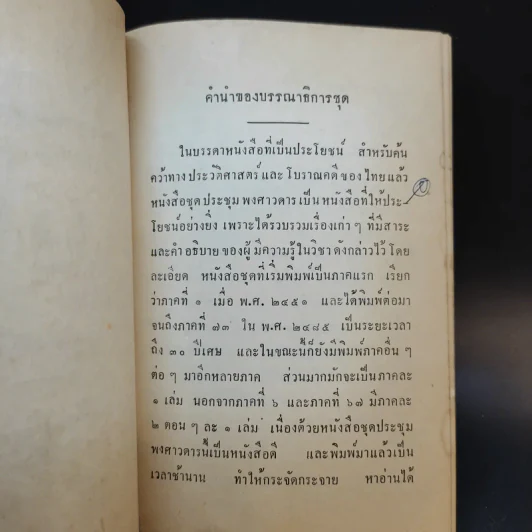 คำนำของบรรณาธิการชุด
ในบรรดาหนังสือที่เป็นประโยชน์ สำหรับค้น
คว้าทาง ประวัติศาสตร์ และ โบราณคดี ของ ไทย แล้ว
หนังสือชุด ประชุม พงศาวดาร เป็น หนังสือ ที่ ให้ประ–
โยชน์อย่างยิ่ง เพราะได้รวบรวมเรื่องเก่า ๆ ที่มีสาระ
และคำ อธิบาย ของ ผู้ มี ความ รู้ ใน วิชา ดังกล่าวไว้ โดย
ละเอียด หนังสือชุดที่เริ่มพิมพ์เป็นภาคแรก เรียก
ว่าภาคที่ ๑ เมื่อ พ.ศ. ๒๔๕๑ และได้พิมพ์ต่อมา
จนถึงภาคที่ ๗๓ ใน พ.ศ. ๒๔๘๕ เป็นระยะเวลา
ถึง ๓๐ ปีเศษ และในขณะนี้ก็ยังมีพิมพ์ภาคอื่น ๆ
ต่อ ๆ มาอีกหลายภาค ส่วนมากมักจะเป็นภาคละ
๑ เล่ม นอกจากภาคที่ ๖ และภาคที่ ๖๗ มีภาคละ
๒ ตอน ๆ ละ ๑ เล่ม เนื่องด้วยหนังสือชุดประชุม
พงศาวดารนี้เป็นหนังสือดี และพิมพ์มาแล้วเป็น
เวลาช้านาน ทำให้กระจัดกระจาย หาอ่านได้